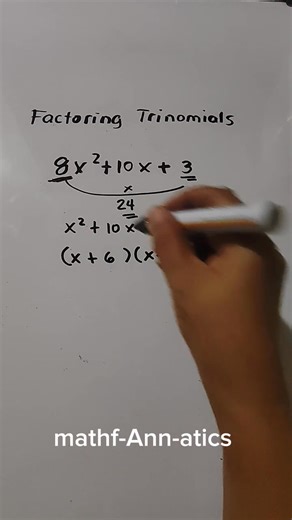 Factoring Trinomials
8x²+10x + 3
x
24
x² + 10x
(x + 6)(x
mathf-Ann-atics